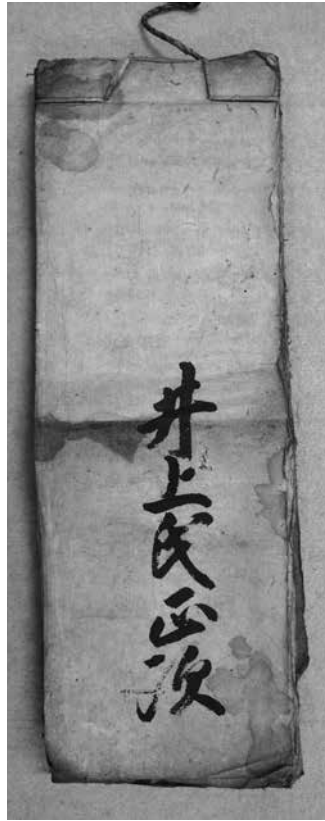 井上氏正次